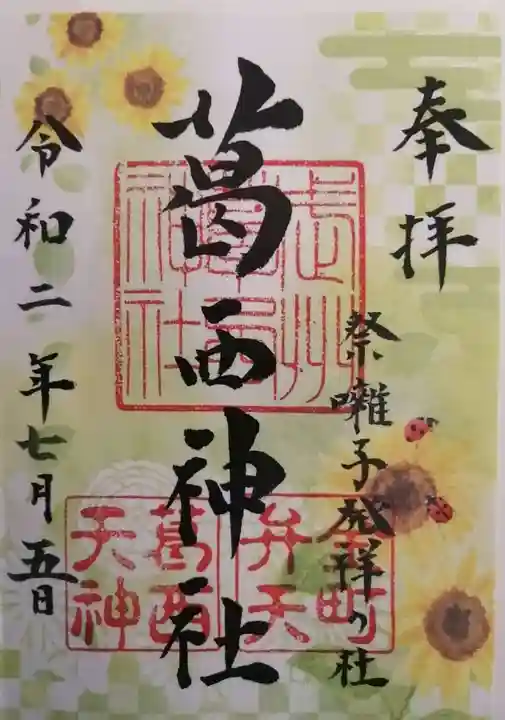 奉拝
祭囃子発祥の社
葛西神社
令和二年七月五日
武州
葛西
神社
金町
弁天
葛西
天神